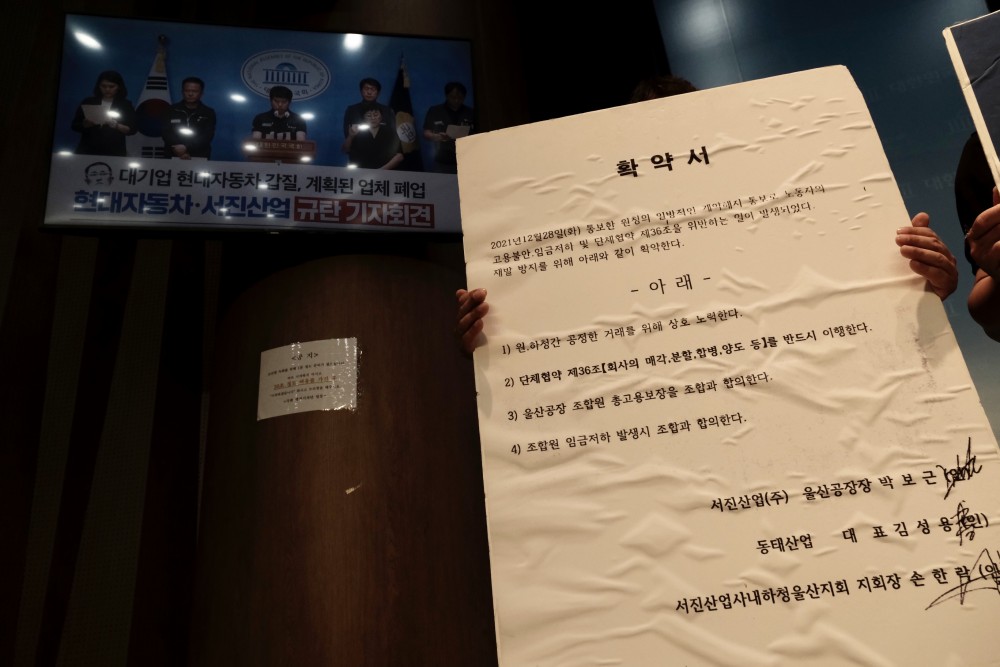 대기업 현대자동차 갑질, 계획된 업체 폐업
현대자동차·서진산업 규탄 기자회견
확약서
2021년12월28일(화) 통보한 원청의 일방적인 계약해지 통보로 노동자의
고용불안.임금저하 및 단체협약 제36조을 위반하는 일이 발생되었다.
재발 방지를 위해 아래와 같이 확약한다.
- 아 래 -
1) 원.하청간 공정한 거래를 위해 상호 노력한다.
2) 단체협약 제36조【회사의 매각,분할,합병,양도 등】를 반드시 이행한다.
3) 울산공장 조합원 총고용보장을 조합과 합의한다.
4) 조합원 임금저하 발생시 조합과 합의한다.
서진산업(주) 울산공장장 박 보 근 (인)
동태산업 대 표 김 성 용 (인)
서진산업사내하청울산지회 지회장 손 한 락